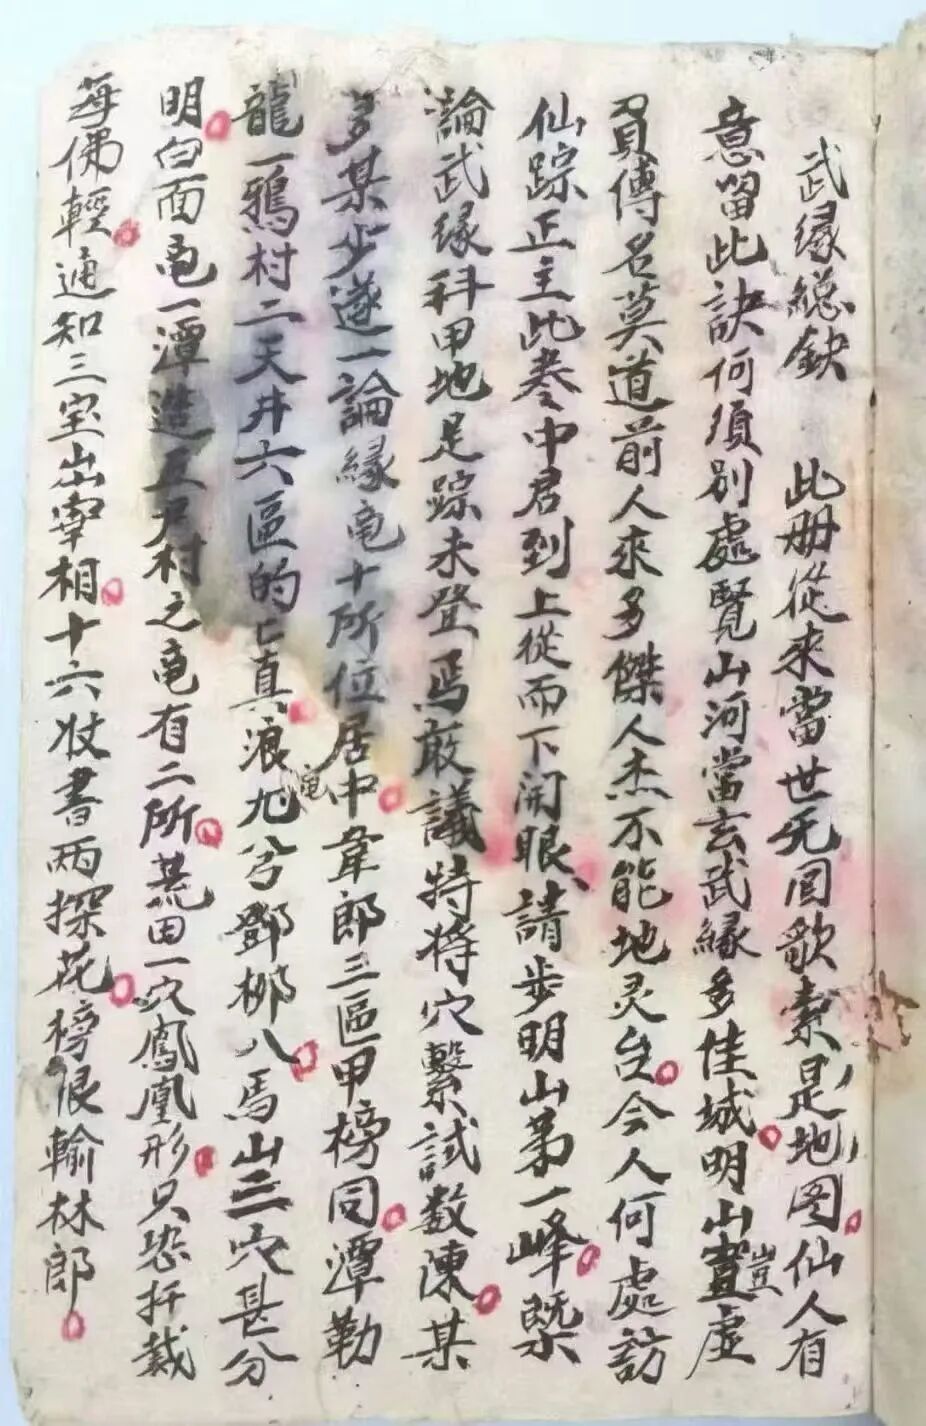 武緣總鈌 此册從來當世无因歌素是地图仙人有
意留此訣何須别處覽山河當玄武緣多佳城明山置豈虚
員傳名莫道前人來多傑人杰不能地灵台今人何處訪
仙踪正主此巻中君到上從而下開眼請步明山第一峰既
論武缘科甲地足踪未登焉敢議特将穴繫試数陳某
多某少遂一論緣竜十所位居中韋郎三區甲榜同潭勒
龍一鴉村二天井六區的亡真浪竜尨兮鄧柳八馬山三穴甚分
明白面竜一潭造五尺村之竜有二所荒田一穴鳳凰形只恐扦裁
每佛輕通知三宝出宰相十六妆書两探花榜俍輸林郎